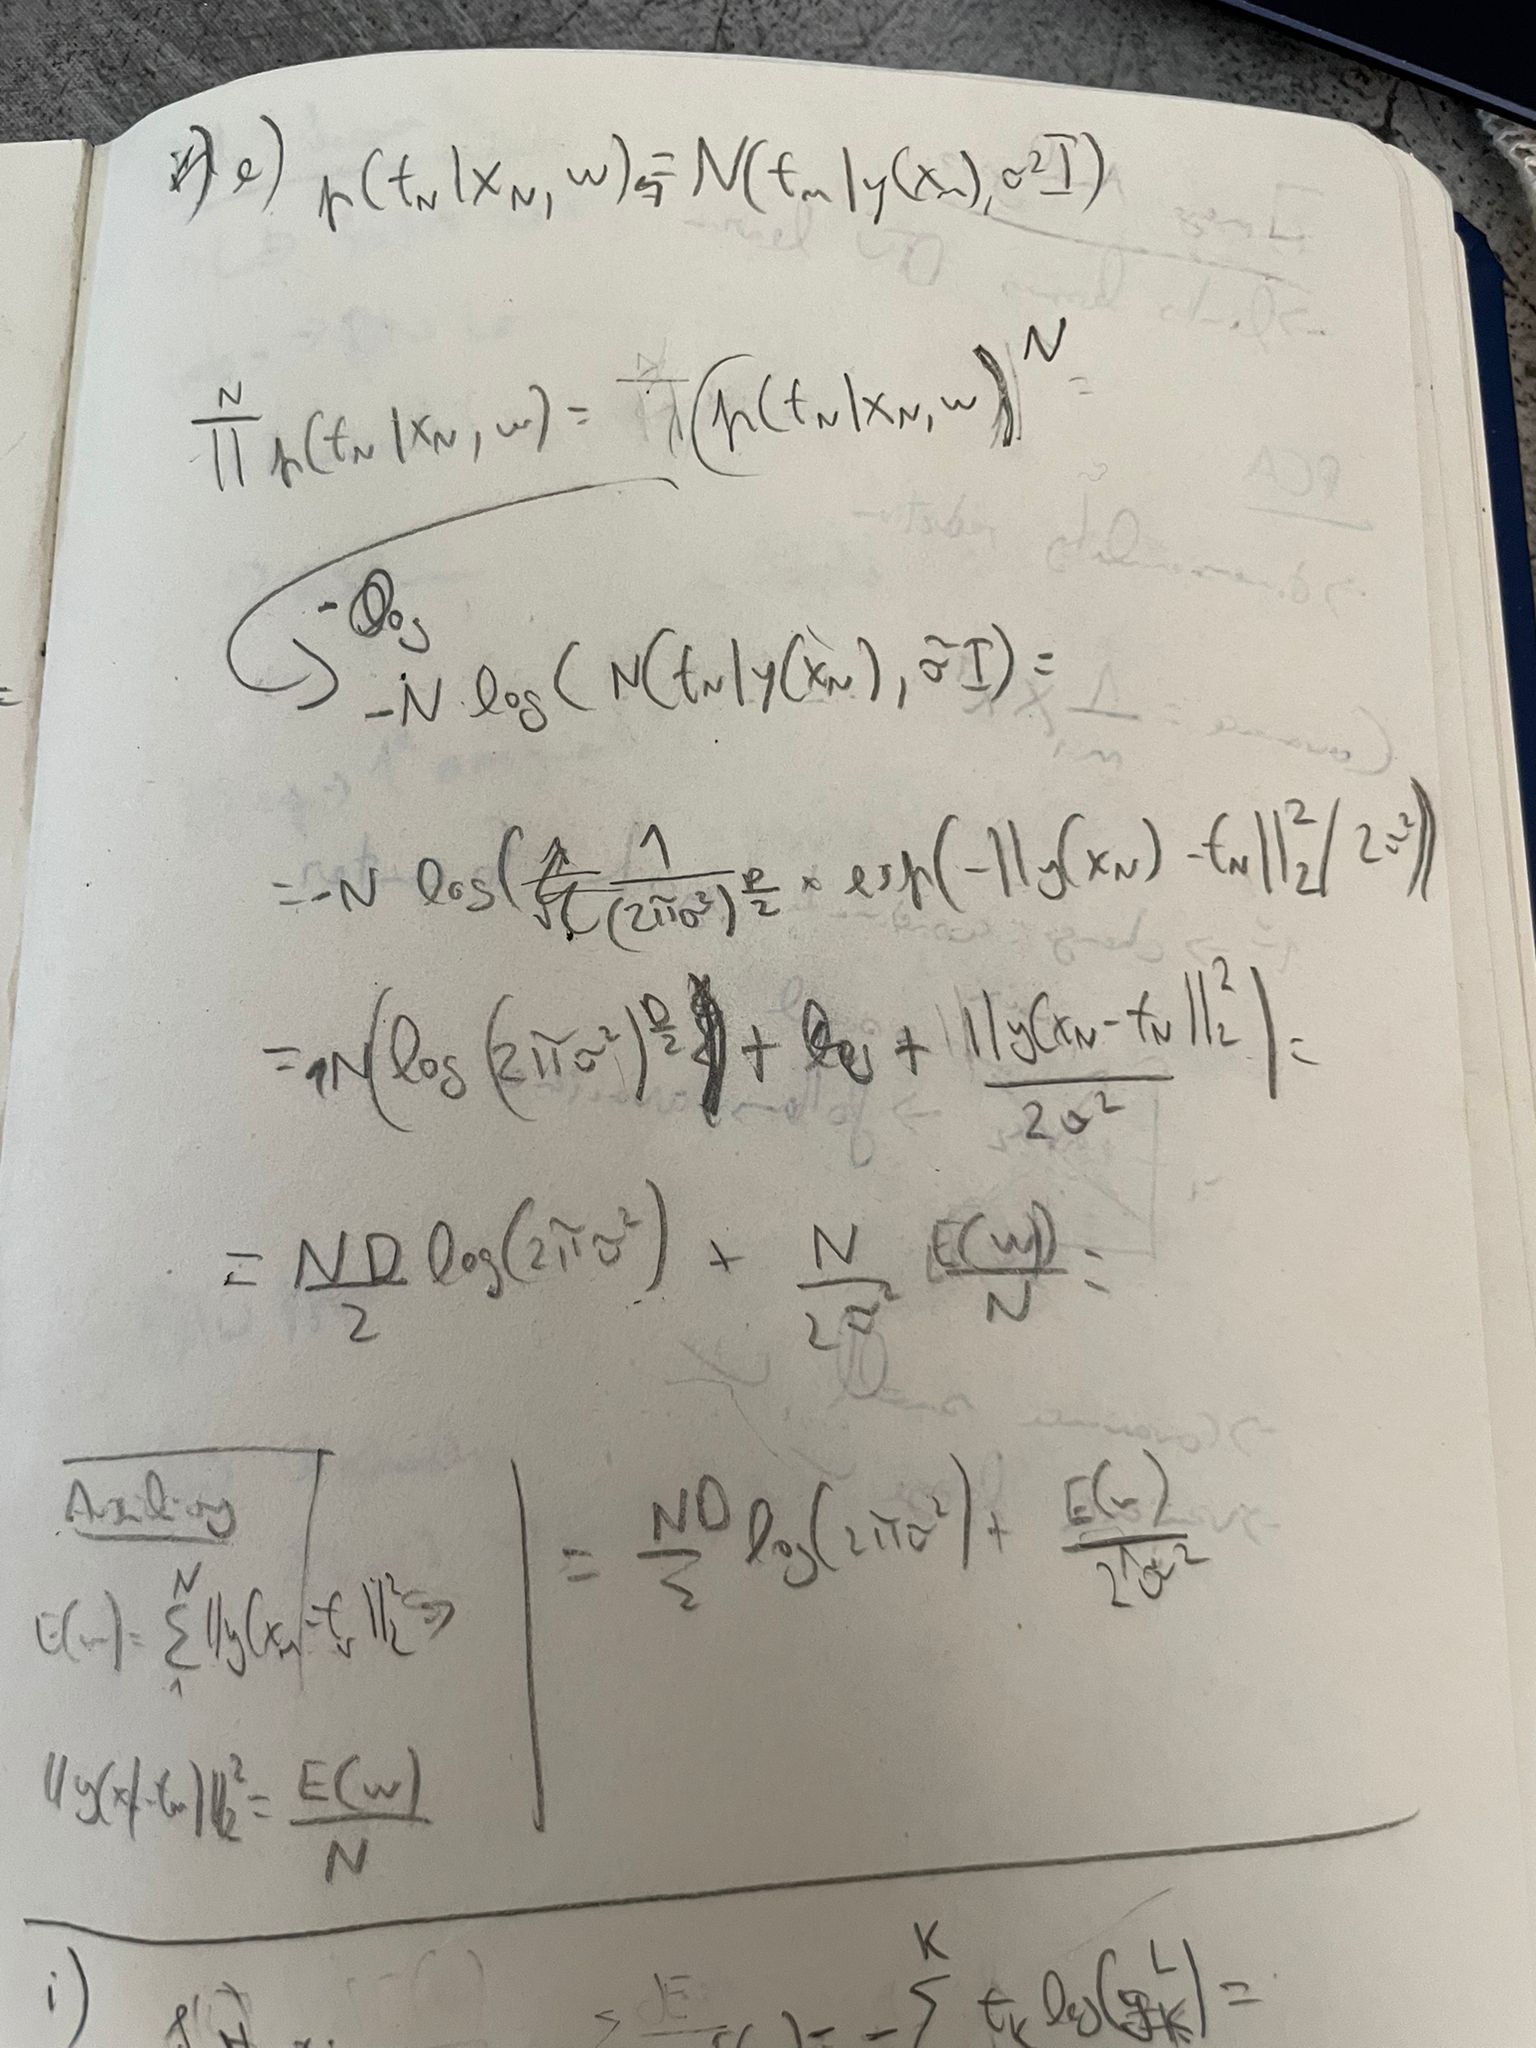 e) p(t_N|x_N, w) = N(t_n|y(x_n), σ²I)
N
∏ p(t_N|x_N, w) = (p(t_N|x_N, w))^N =
-log
-N log(N(t_N|y(x_N), σ²I) =
= -N log( 1/(2πσ²)^(D/2) × exp(-||y(x_N) - t_N||₂²/2σ²))
= N(log(2πσ²)^(D/2) + ||y(x_N - t_N||₂²/2σ²) =
= ND/2 log(2πσ²) + N/2σ² E(w)/N =
Auxiliary
E(w) = Σ₁^N ||y(x_n - t_n||₂² ⇔
||y(x) - t_n)||₂² = E(w)/N
= ND/2 log(2πσ²) + E(w)/2σ²
i)
K
= -Σ t_K log(y_K^L) =